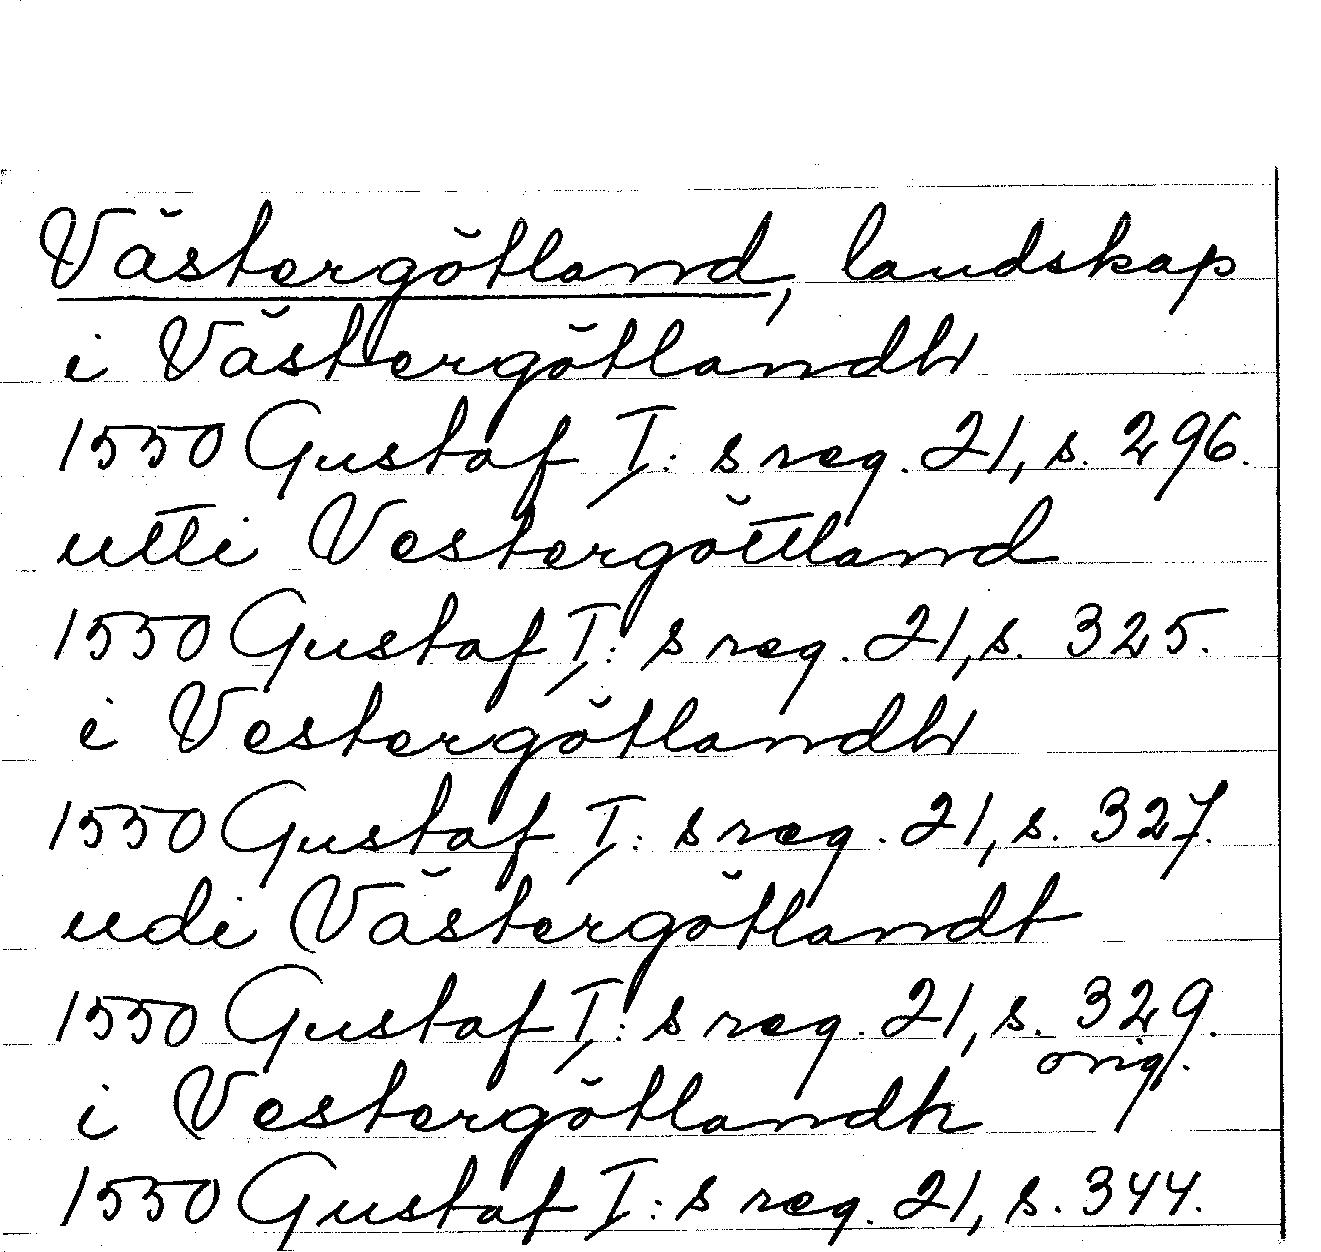 Västergötland, landskap
i Västergötlandh
1550 Gustaf I: s reg. 21, s. 296.
utti Vestergöttland
1550 Gustaf I: s reg. 21, s. 325.
i Vestergötlandh
1550 Gustaf I: s reg. 21, s. 327.
udi Västergötlandt
1550 Gustaf I: s reg. 21, s. 329.
orig.
i Vestergötlandh
1550 Gustaf I: s reg. 21, s. 344.